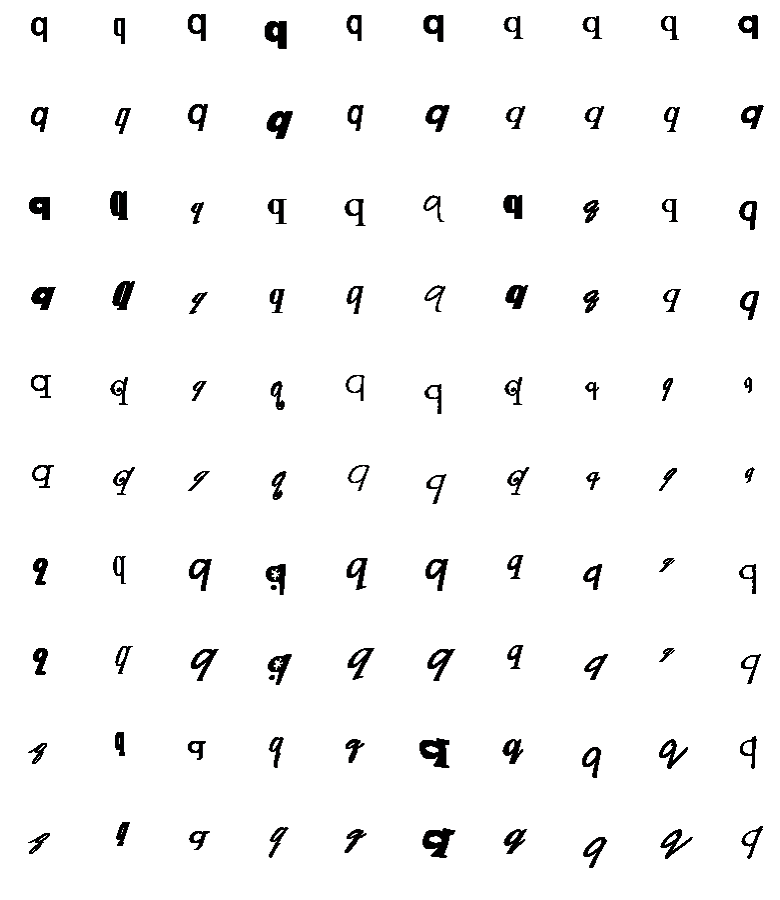 q q q q q q q q q q
q q q q q q q q q q
q q q q q q q q q q
q q q q q q q q q q
q q q q q q q q q q
q q q q q q q q q q
q q q q q q q q q q
q q q q q q q q q q
q q q q q q q q q q
q q q q q q q q q q